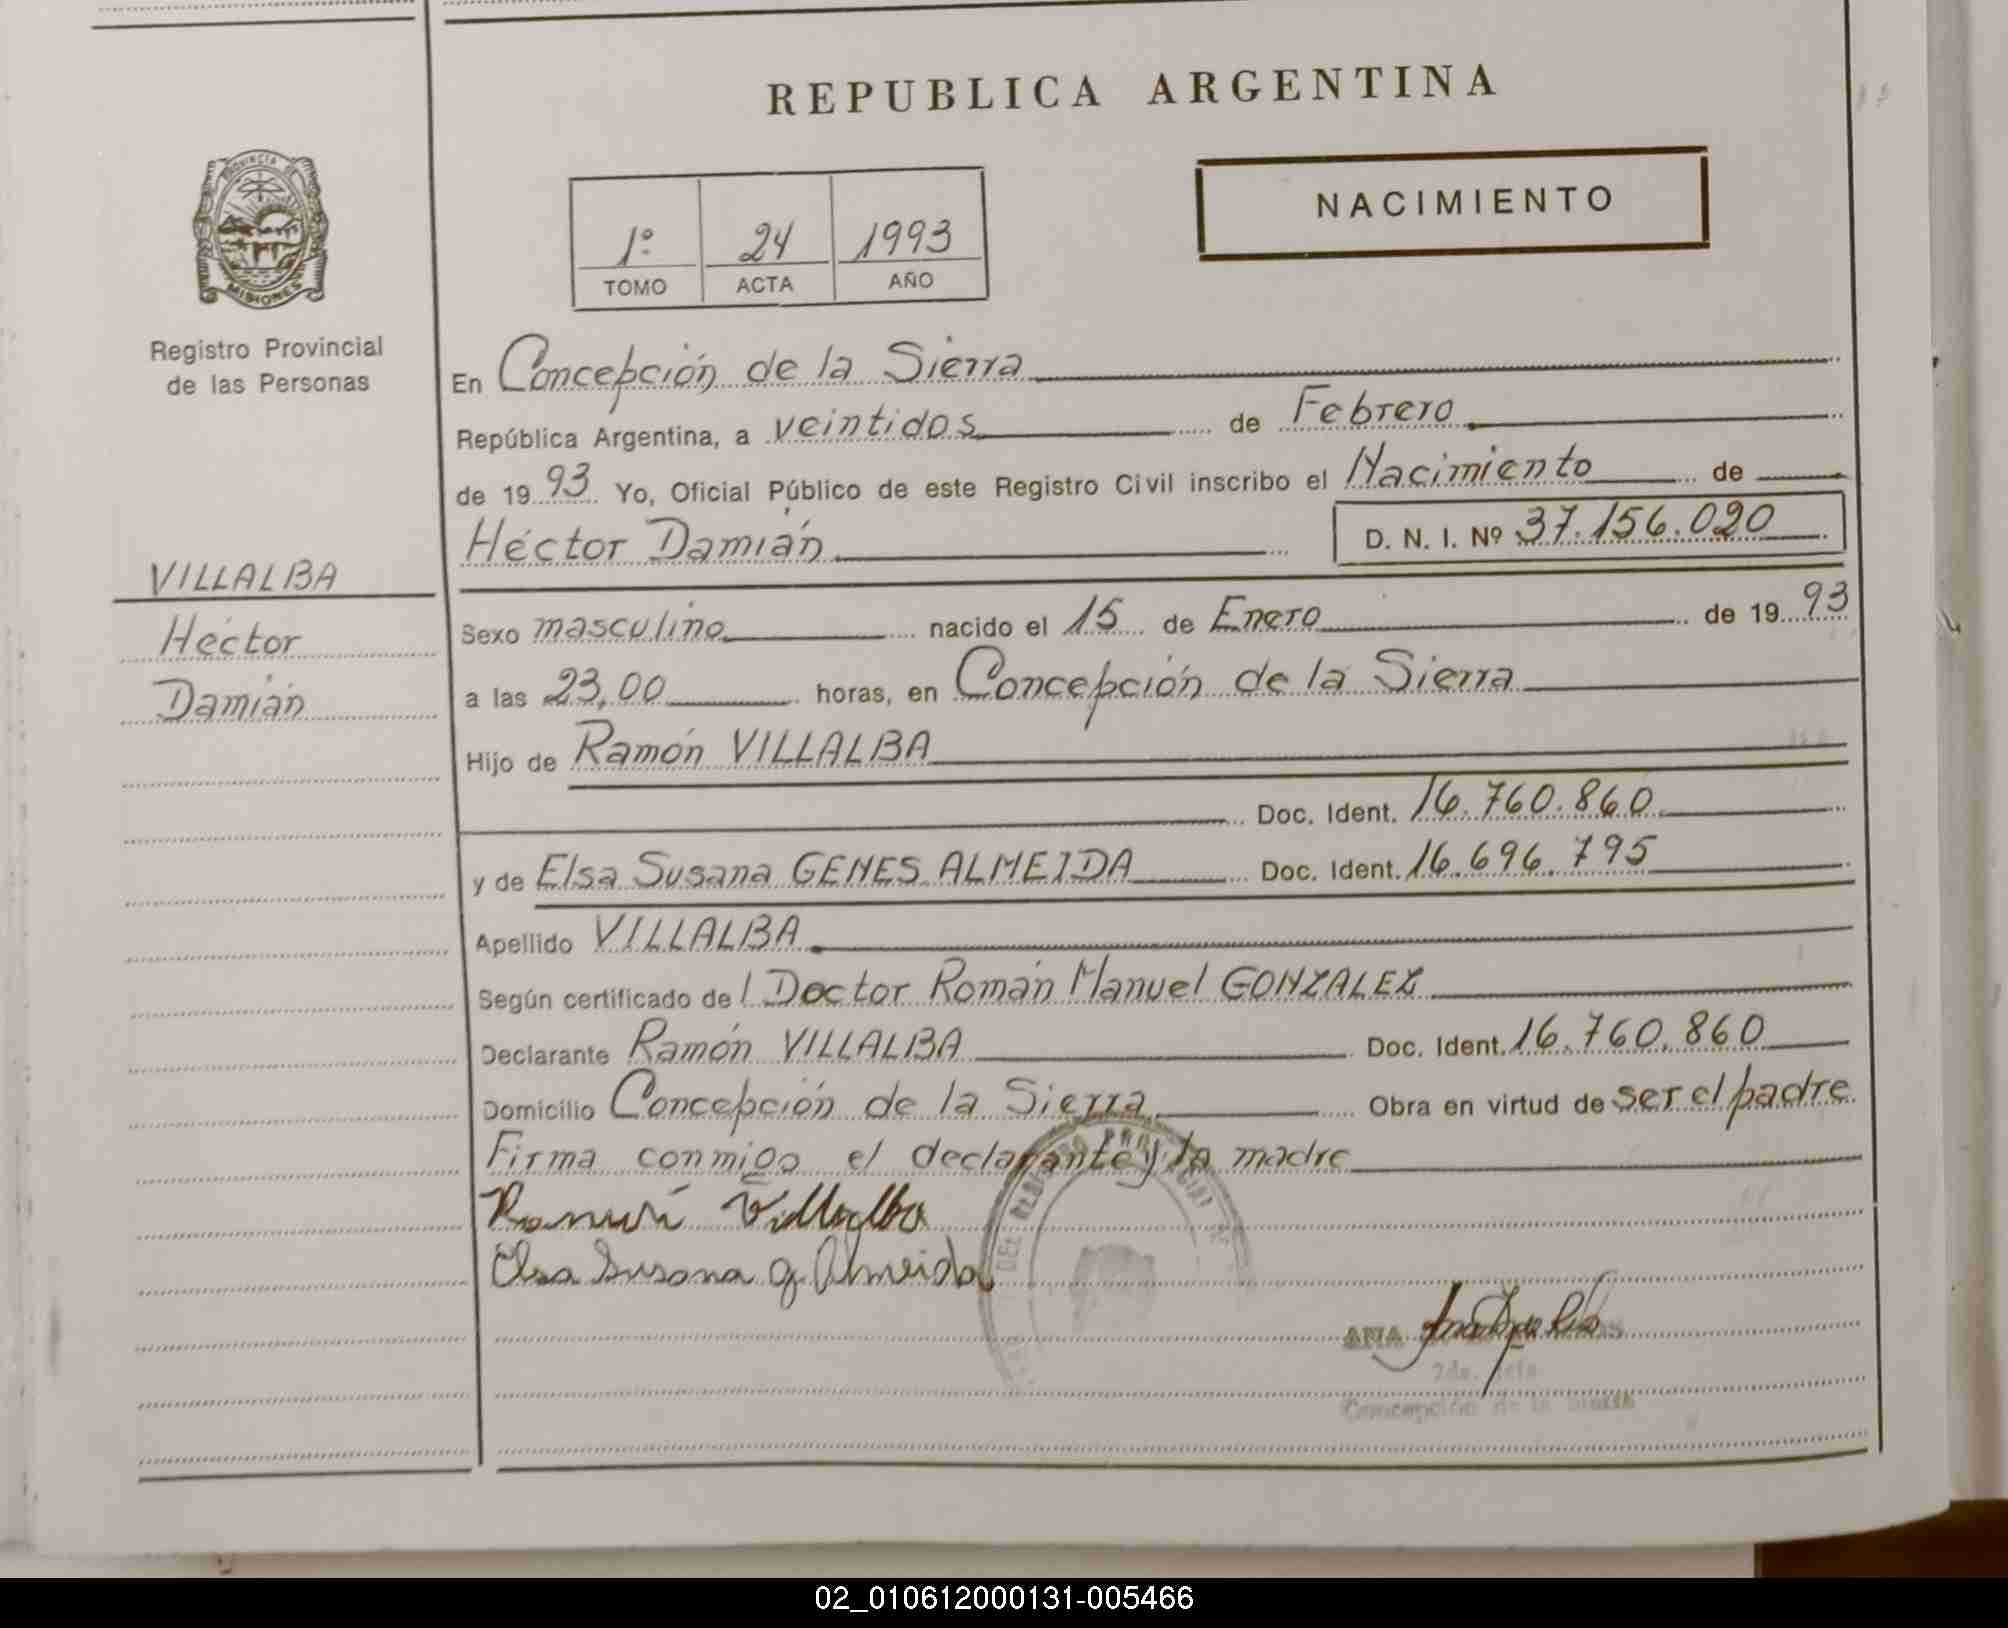 REPUBLICA ARGENTINA
NACIMIENTO
PROVINCIA DE
MISIONES
Registro Provincial
de las Personas
1º 24 1993
TOMO ACTA AÑO
En Concepción de la Sierra
República Argentina, a veintidos de Febrero
de 1993 Yo, Oficial Público de este Registro Civil inscribo el Nacimiento de
Héctor Damián D. N. I. Nº 37.156.020
VILLALBA
Héctor
Damián
Sexo masculino nacido el 15 de Enero de 1993
a las 23,00 horas, en Concepción de la Sierra
Hijo de Ramón VILLALBA
Doc. Ident. 16.760.860
y de Elsa Susana GENES ALMEIDA Doc. Ident. 16.696.795
Apellido VILLALBA
Según certificado del Doctor Román Manuel GONZALEZ
Declarante Ramón VILLALBA Doc. Ident. 16.760.860
Domicilio Concepción de la Sierra Obra en virtud de ser el padre
Firma conmigo el declarante y la madre
Ramón Villalba
Elsa Susana g Almeida
ANA
2da. Jefe
Concepción de la Sierra
02_010612000131-005466